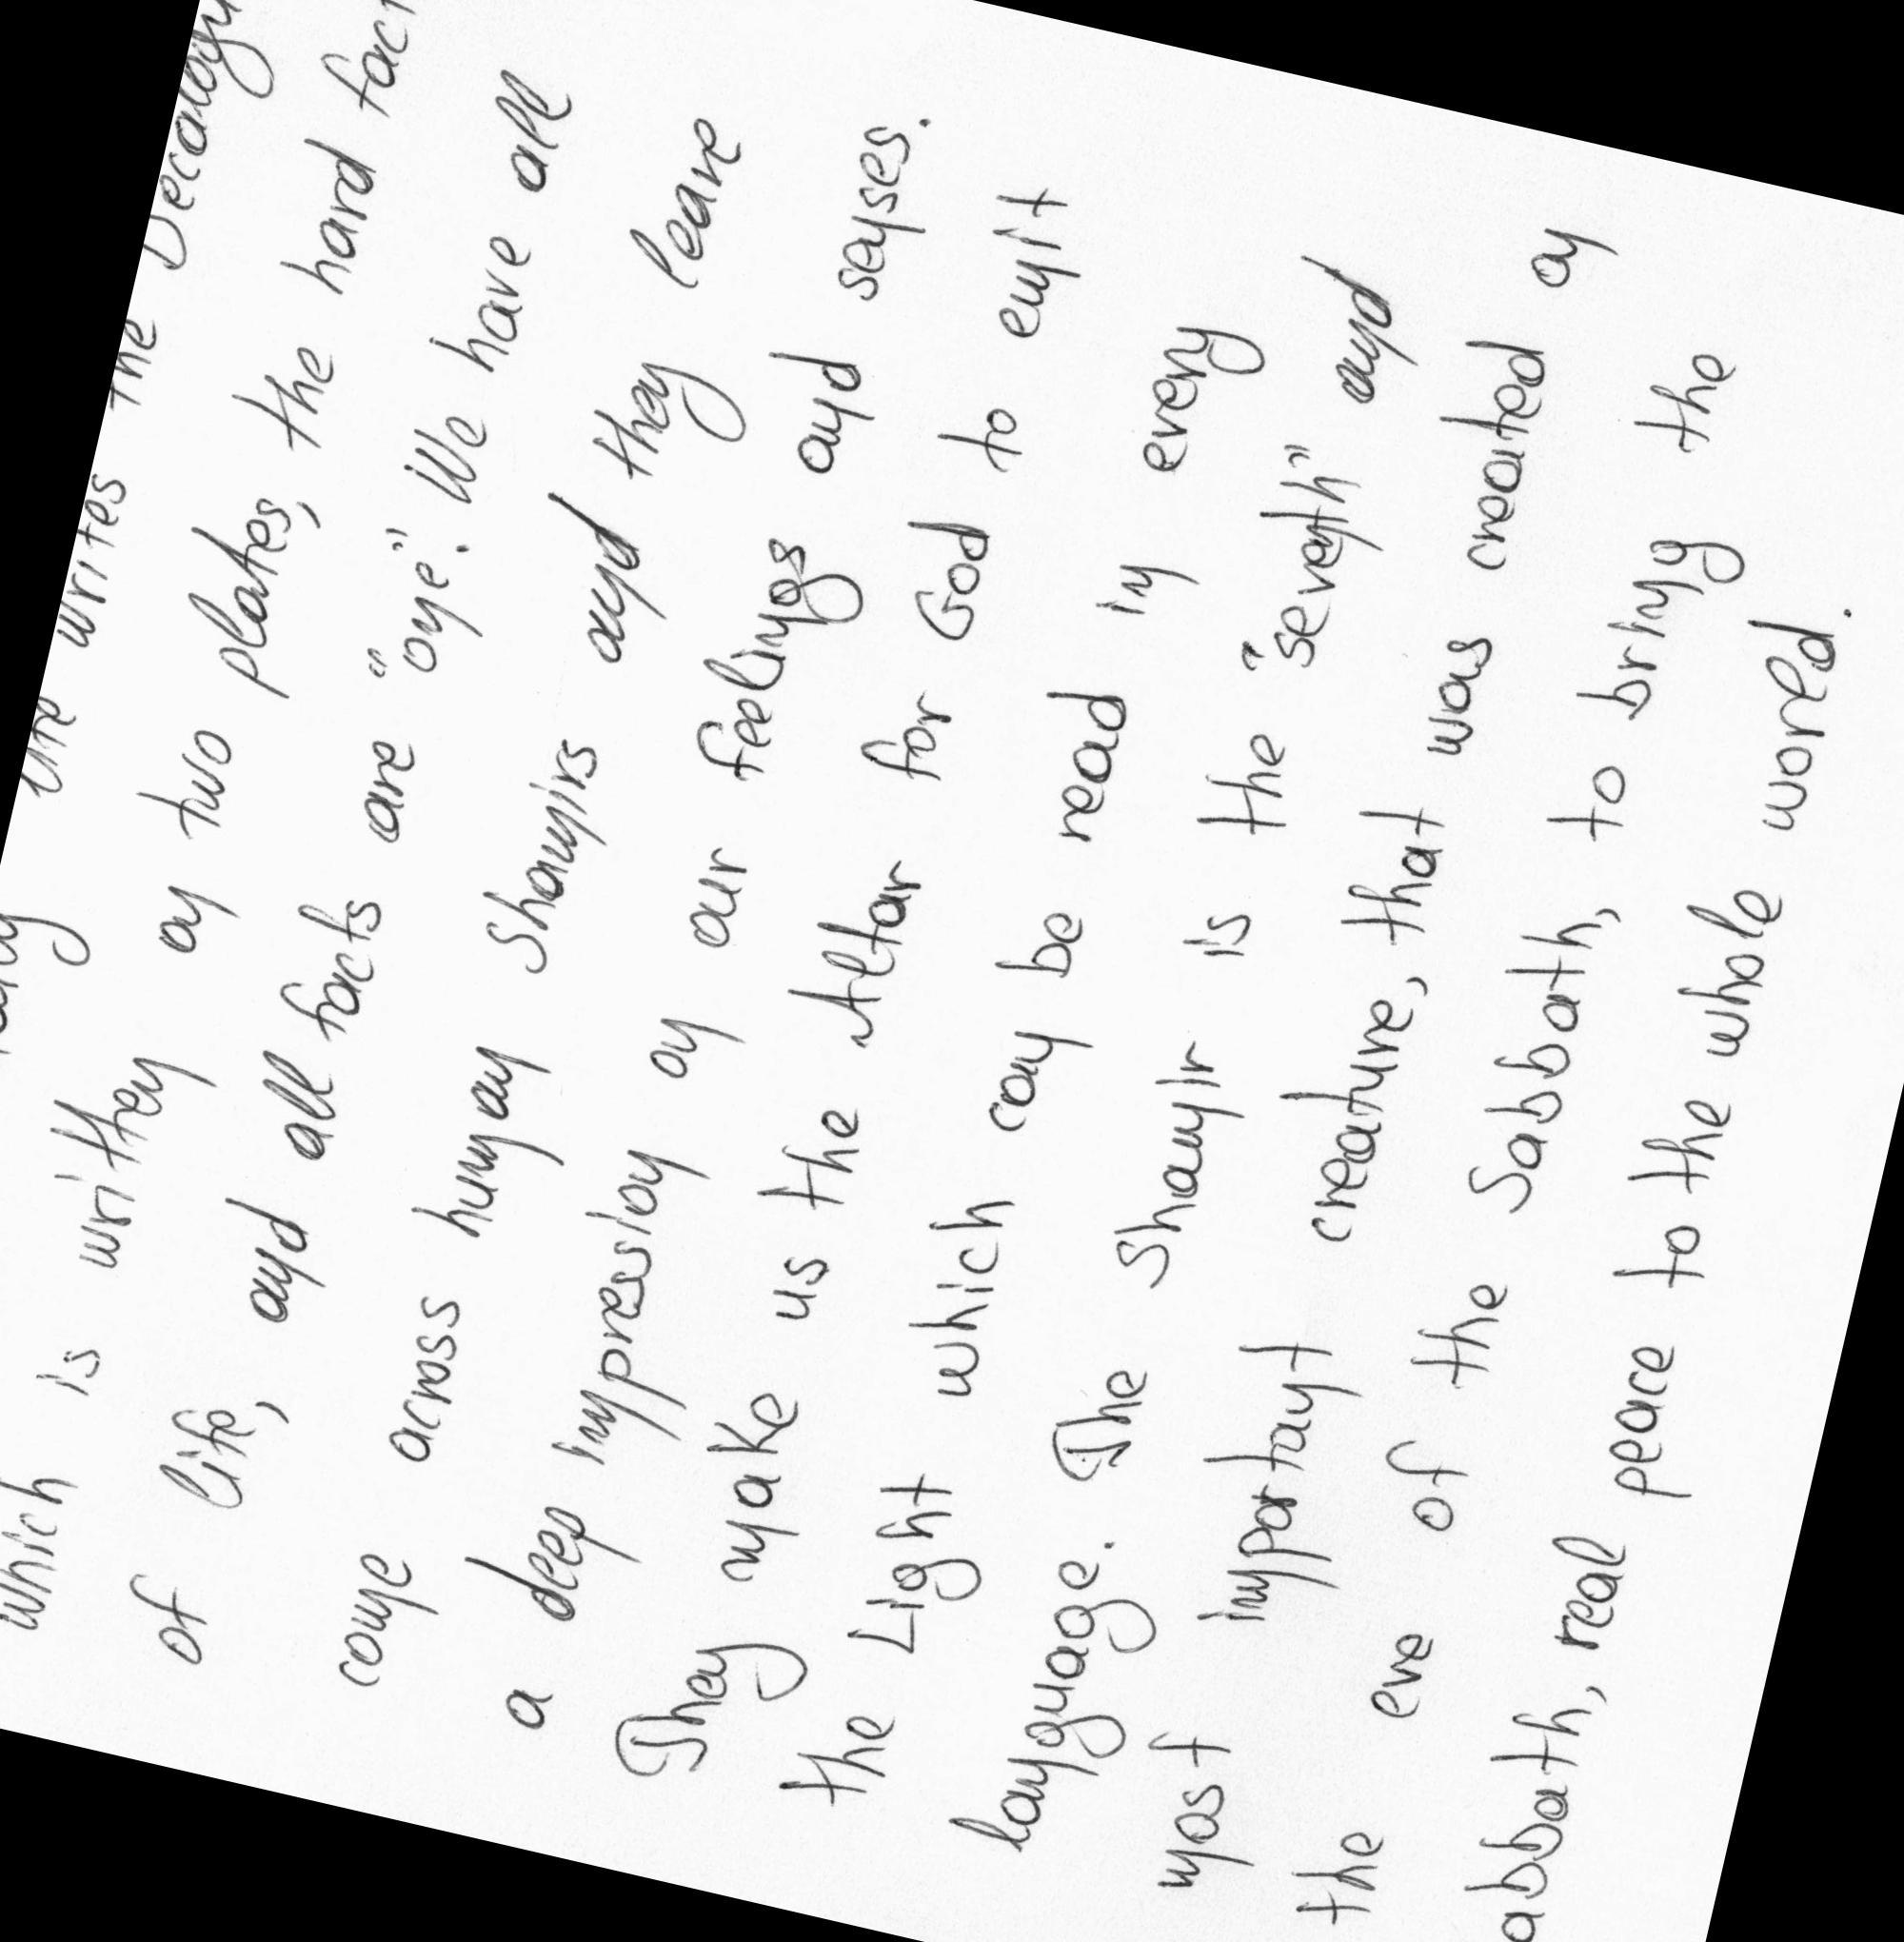 writes the
which is written on two plates, the hard
of life, and all facts are "one". We have all
come across human Shamirs and they leave
a deep impression on our feelings and senses.
They make us the Altar for God to emit
the Light which can be read in every
language. The Shamir is the "seventh" and
most important creature, that was created on
the eve of the Sabbath, to bring the
abbath, real peace to the whole world.